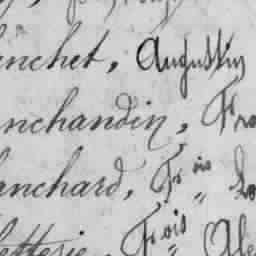 inchet, Augustin
nchandin, Fra
anchard, Fr ois
etterie, Frois